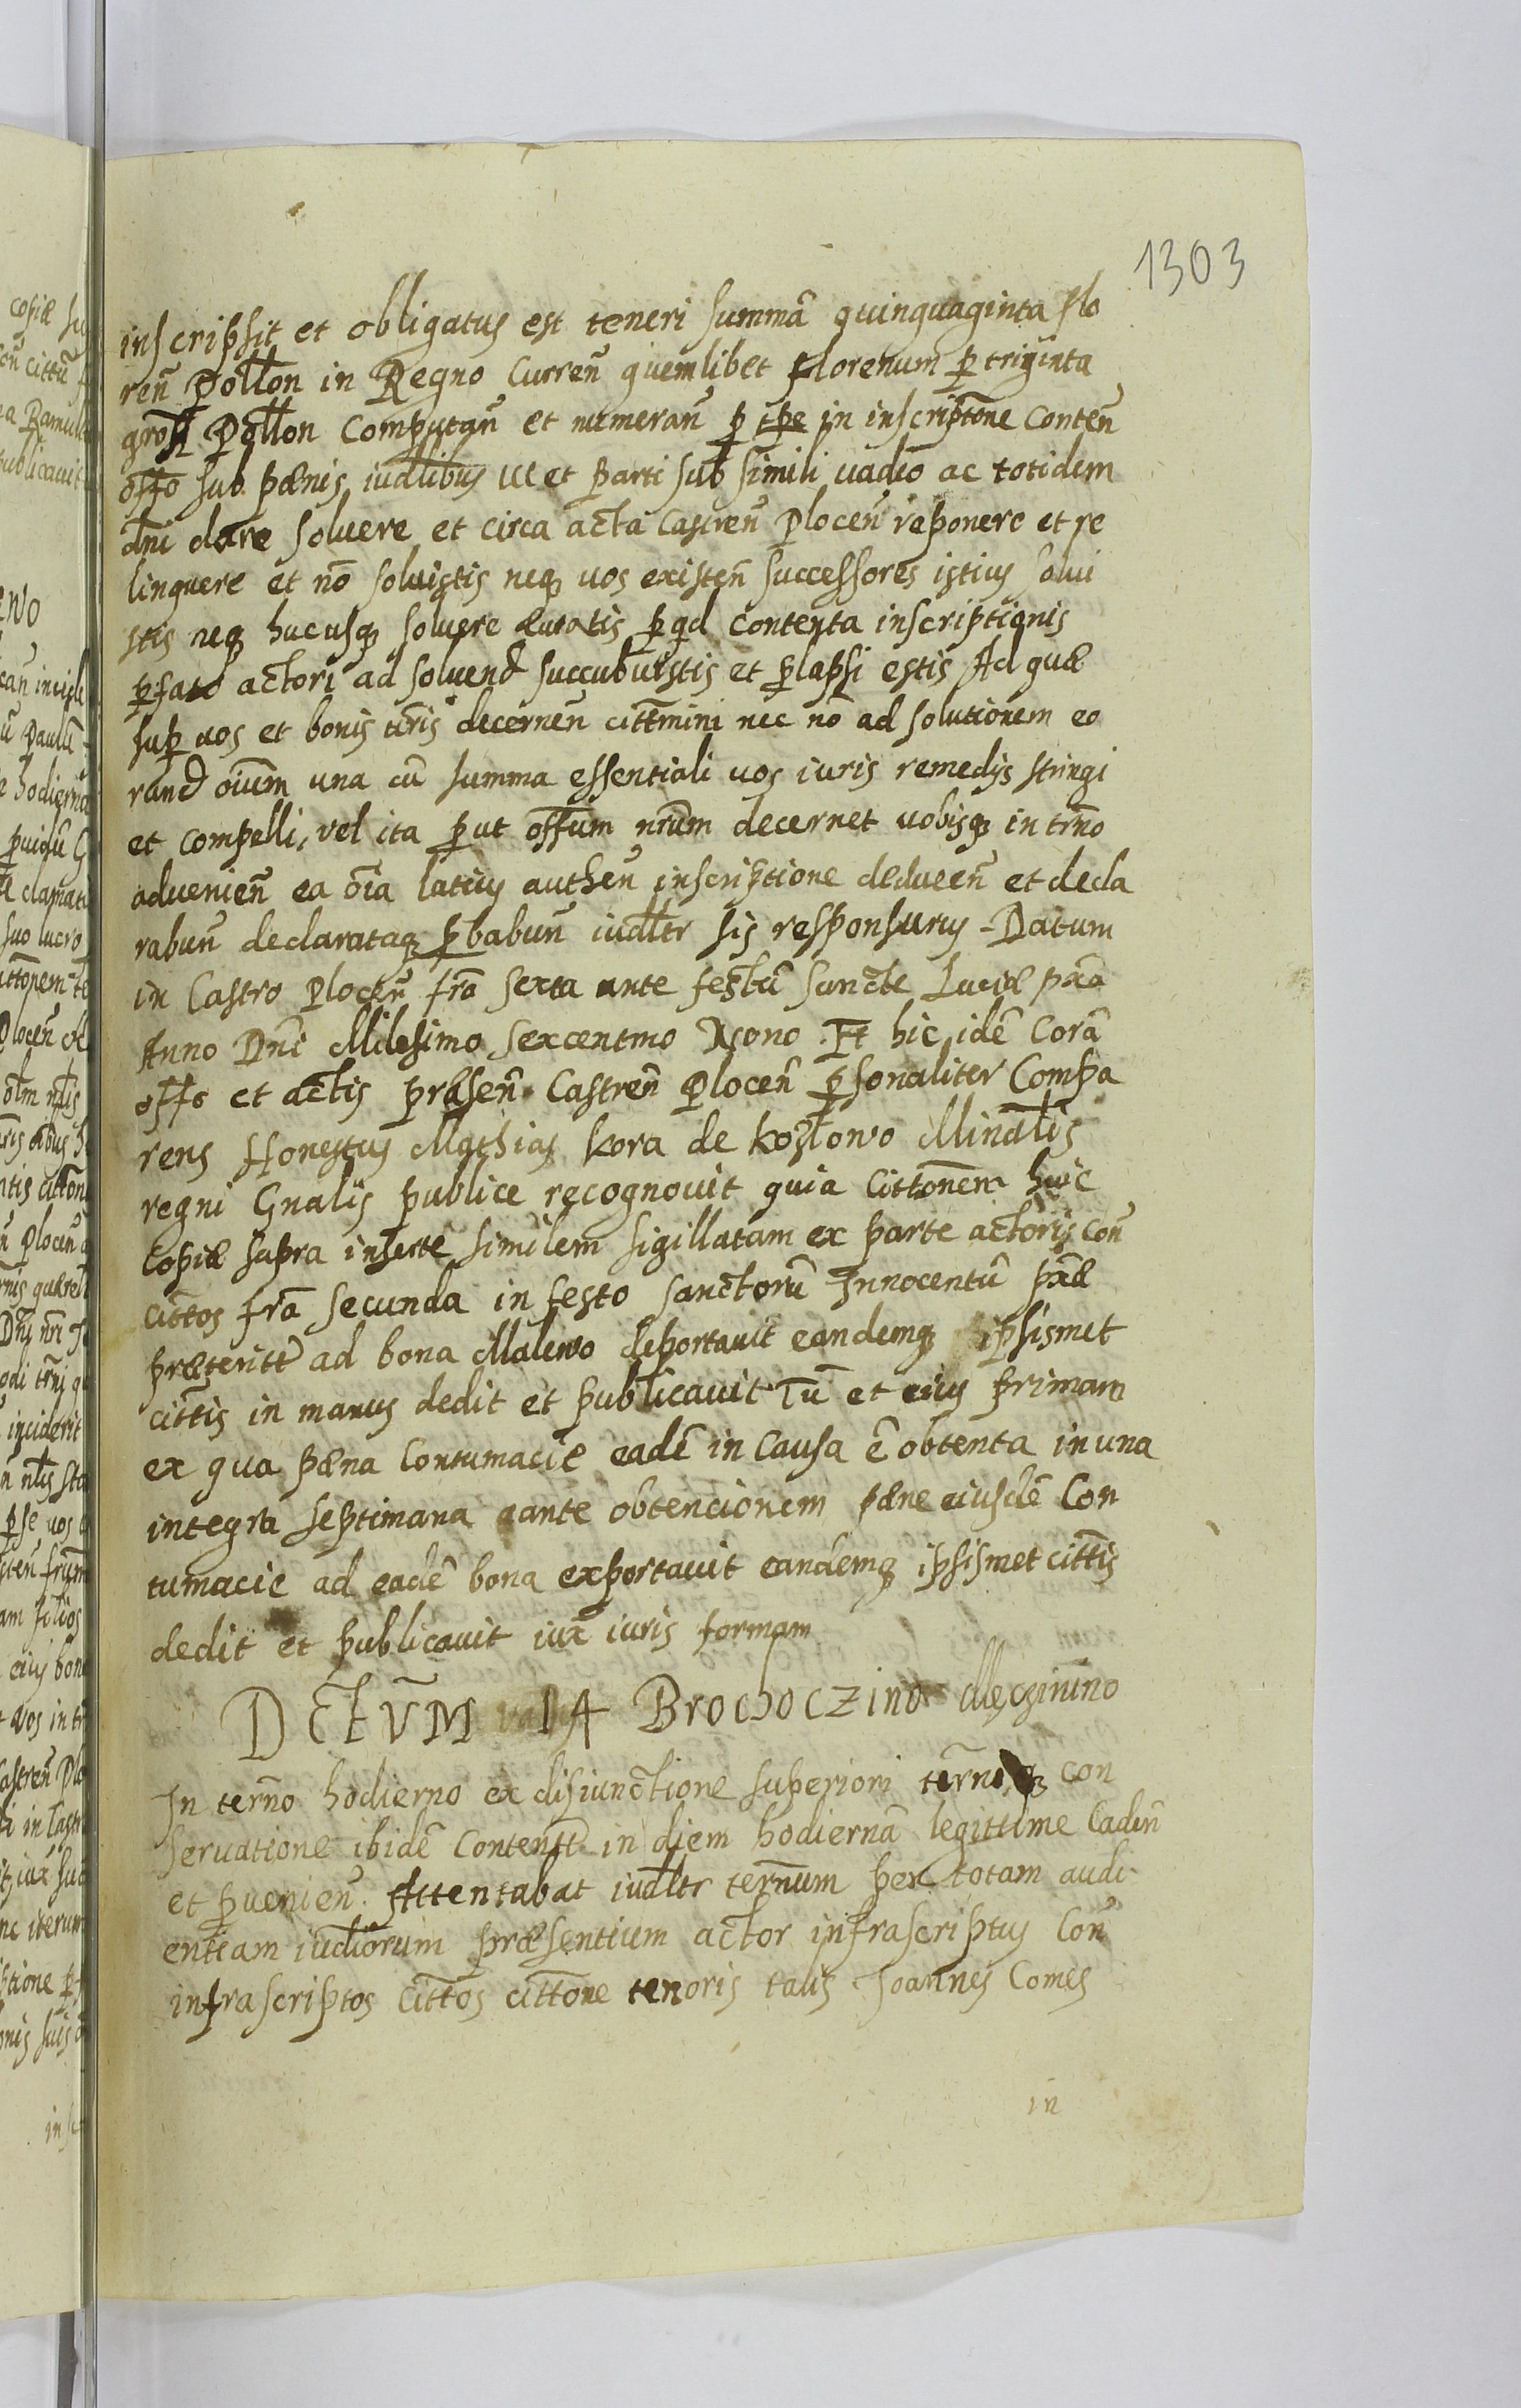 1303
inscripsit et obligatus est teneri summã quinquaginta flo
ren̄ Pollon in Regno Curren̄ quemlibet florenum p̱ triginta
gross Pollon Computan̄ et numeran̄ p̱ tp̄e in inscriptōne Conten̄
offo sub pænis iudlibus et parti sub simili uadio ac totidem
dni dare soluere et circa acta Castren̄ Plocen̄ reponere et re
linquere et nō soluistis neq́ꝫ uos existen̄ successores istius solui
stis neqꝫ hucusqꝫ soluere curatis p̱ qd contenta inscriptionis
p̱fato actori ad soluend succubuistis et p̱lapsi estis Ad quæ
sup̱ uos et bonis uris decernen̄ cittmini nec nō ad solutionem eo
rand oīum una cũ summa essentiali uos iuris remedijs stringi
et compelli, vel ita p̱ut offum nrūm decernet uobisqꝫ in trn̄o
aduenien̄ ea oīa latius authen̄ inscriptione deducen̄ et decla
rabun̄ declarataqꝫ p̱babun̄ iudltr sis responsurus - Datum
in Castro Plocen̄ fr̄a sexta ante festū sancte Luciæ px̄a
Anno Dn̄i Millesimo sexcentmo Nono Et hic idē Corā
offo et actis præsen̄ Castren̄ Plocen̄ p̱sonaliter Compa
rens Honestus Mathias Kora de Kozlowo Min̄alis
regni Gnalis publice recognouit quia Cittonem huic
Copiæ supra inserte similem sigillatam ex parte actoris con̄
cittos fr̄a secunda in festo sanctorū Innocentũ px̄æ
præterite ad bona Malewo deportauit eandemqꝫ ipsismet
cittis in manus dedit et publicauit Tū et eius primam
ex qua pæna Contumacie eadē in Causa ē obtenta in una
integra septimana aante obtencionem pæne eiusdē Con
tumacie ad eadē bona exportauit eandemqꝫ ipsismet cittis
dedit et publicauit iux̄ iuris formam
DCTVM Brochoczino
In tern̄o hodierno ex disiunctione superiori tern̄iqꝫ con
seruatione ibidē Content in diem hodiernā legittime Caden̄
et p̱uenien̄ Attentabat iudltr tern̄um per totam audi
entiam iudiorum præsentium actor infrascriptus Con̄
infrascriptos Cittos cittone tenoris talis Joannes Comes
in